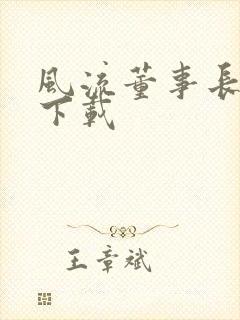 風流董事長
下載
王章斌